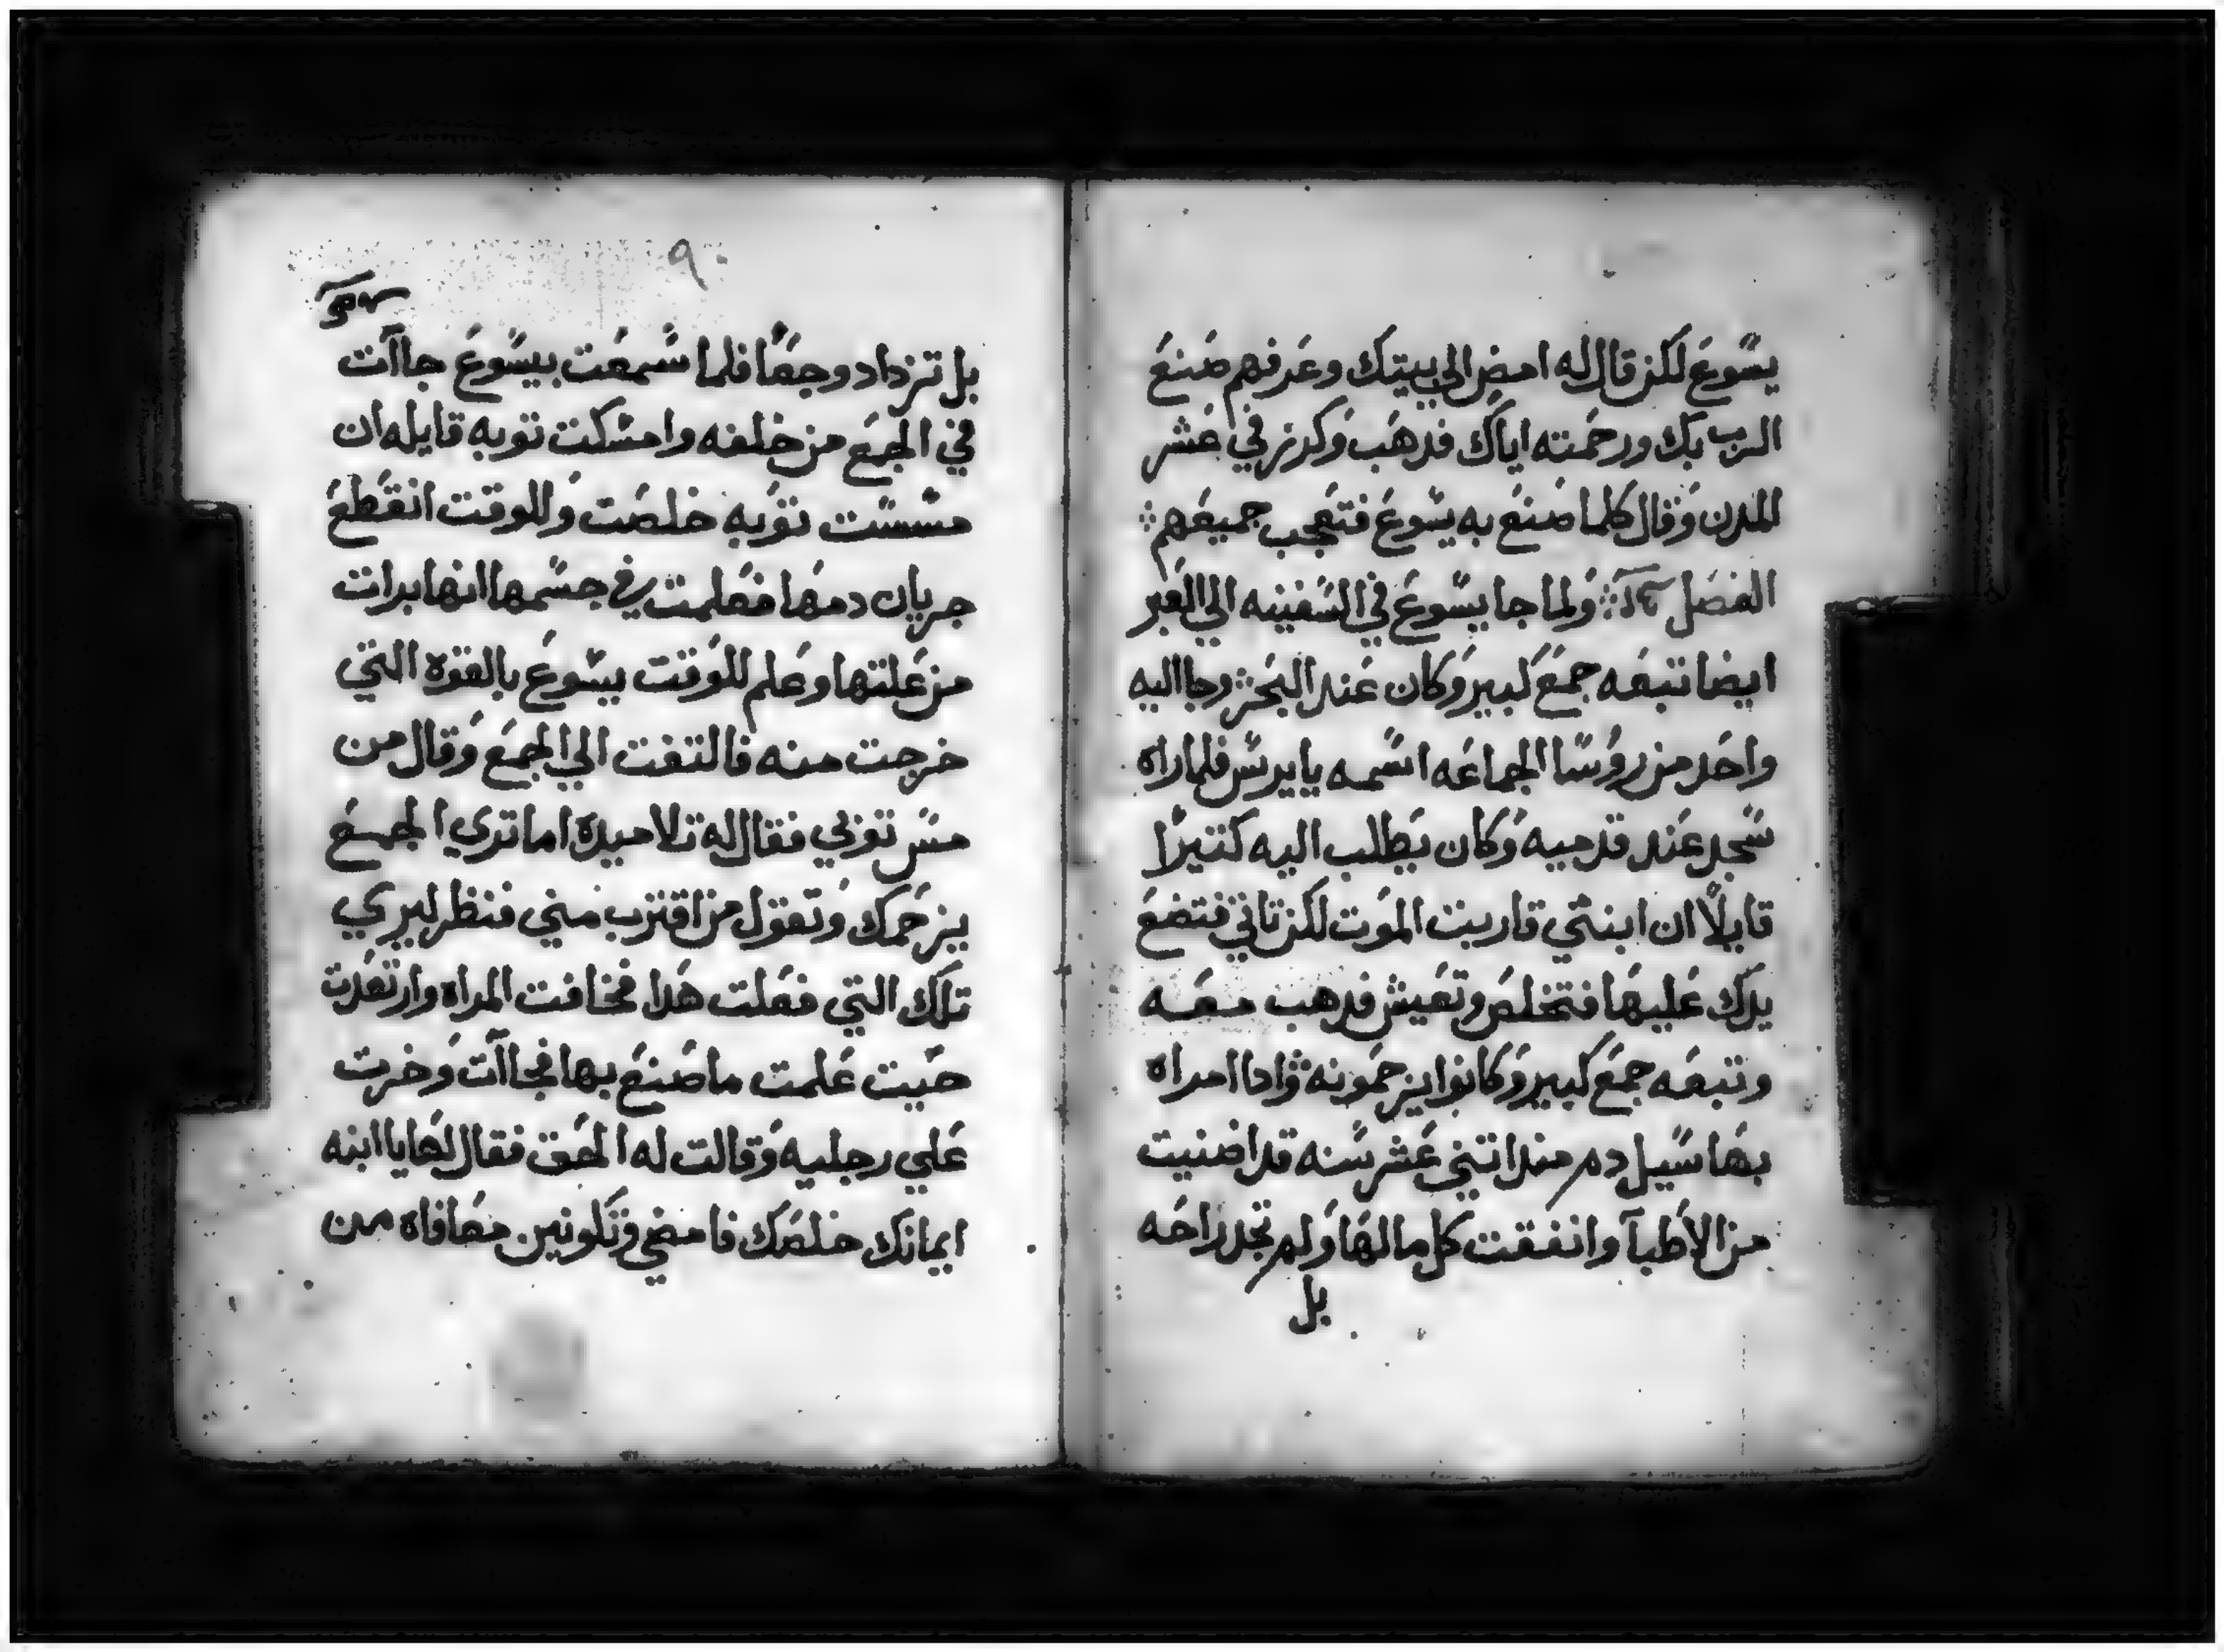 يسوع لكن قال له امض الي بيتك وعرفهم صنع
الرب بك ورحمته اياك فدهب وكرز في عشر
المدن وقال كلما صنع به يسوع فتعجب جميعهم
الفصل ولما جا يسوع في السفينه الي العبر
ايضا تبعه جمع كبير وكان عند البحر وجا اليه
واحد من روسا الجماعه اسمه يايرس فلما راه
سجد عند قدميه وكان يطلب اليه كتيرا
قايلا ان ابنتي قاربت الموت لكن تاتي فتضع
يدك عليها فتخلص وتعيش فدهب معه
وتبعه جمع كبير وكانوا يزحمونه وادا امراه
بها سيل دم مند اتني عشر سنه قد اضنيت
من الاطبآ وانفقت كل مالها ولم تجد راحه
بل
٩٠
بل تزداد وجعا فلما سمعت بيسوع جاآت
في الجمع من خلفه وامسكت توبه قايله ان
مسست توبه خلصت وللوقت انقطع
جريان دمها فعلمت في جسمها انها برات
من علتها وعلم للوقت يسوع بالقوه التي
خرجت منه فالتفت الي الجمع وقال من
مس توبي فقال له تلاميده اما تري الجمع
يزحمك وتقول من اقترب مني فنظر ليري
تلك التي فعلت هدا فخافت المراه وارتعدت
حيت علمت ما صنع بها فجاآت وخرت
علي رجليه وقالت له الحق فقال لها يا ابنه
ايمانك خلصك فامضي وتكونين معافاه من